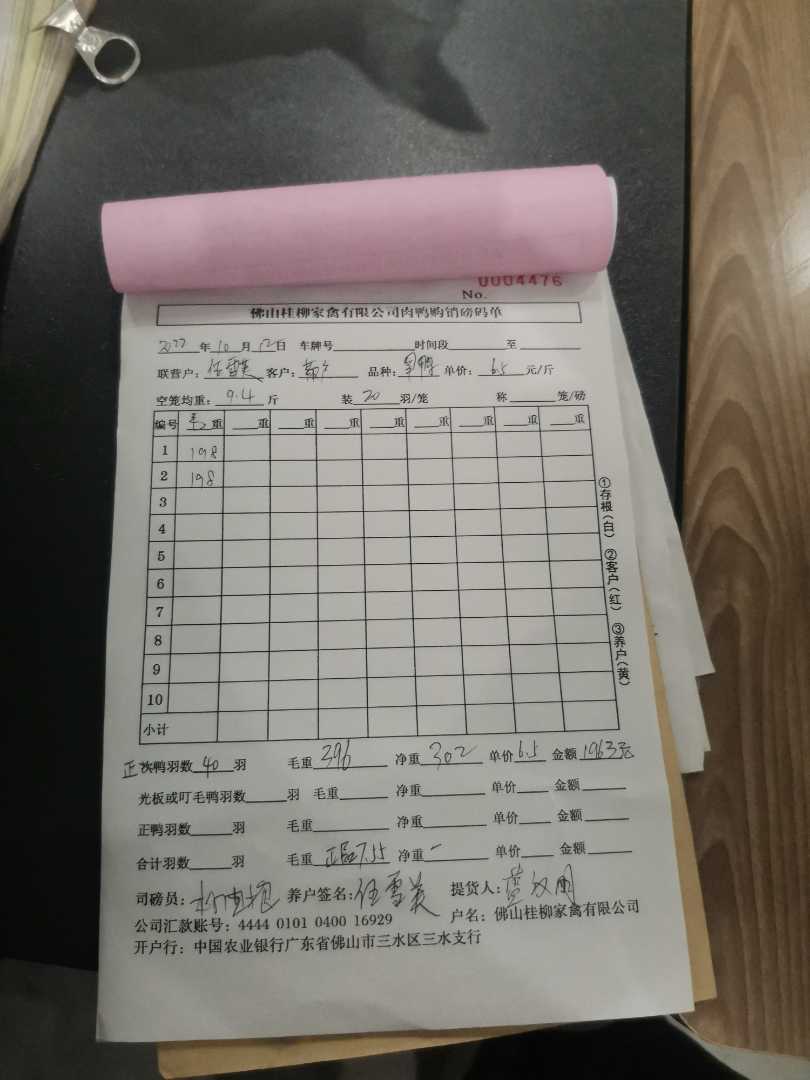 0004476
No.
佛山桂柳家禽有限公司肉鸭购销磅码单
2022年10月12日 车牌号 时间段 至
联营户：任雪美 客户： 品种： 单价：6.5元/斤
空笼均重：9.4斤 装20羽/笼 称 笼/磅
编号 重 重 重 重 重 重 重 重 重
1 198
2 198
3
4
5
6
7
8
9
10
小计
①存根（白） ②客户（红） ③养户（黄）
正次鸭羽数40羽 毛重396 净重302 单价6.5 金额1963元
光板或叮毛鸭羽数 羽 毛重 净重 单价 金额
正鸭羽数 羽 毛重 净重 单价 金额
合计羽数 羽 毛重 7.55 净重 单价 金额
司磅员： 养户签名：任雪美 提货人：
公司汇款账号：4444 0101 0400 16929 户名：佛山桂柳家禽有限公司
开户行：中国农业银行广东省佛山市三水区三水支行